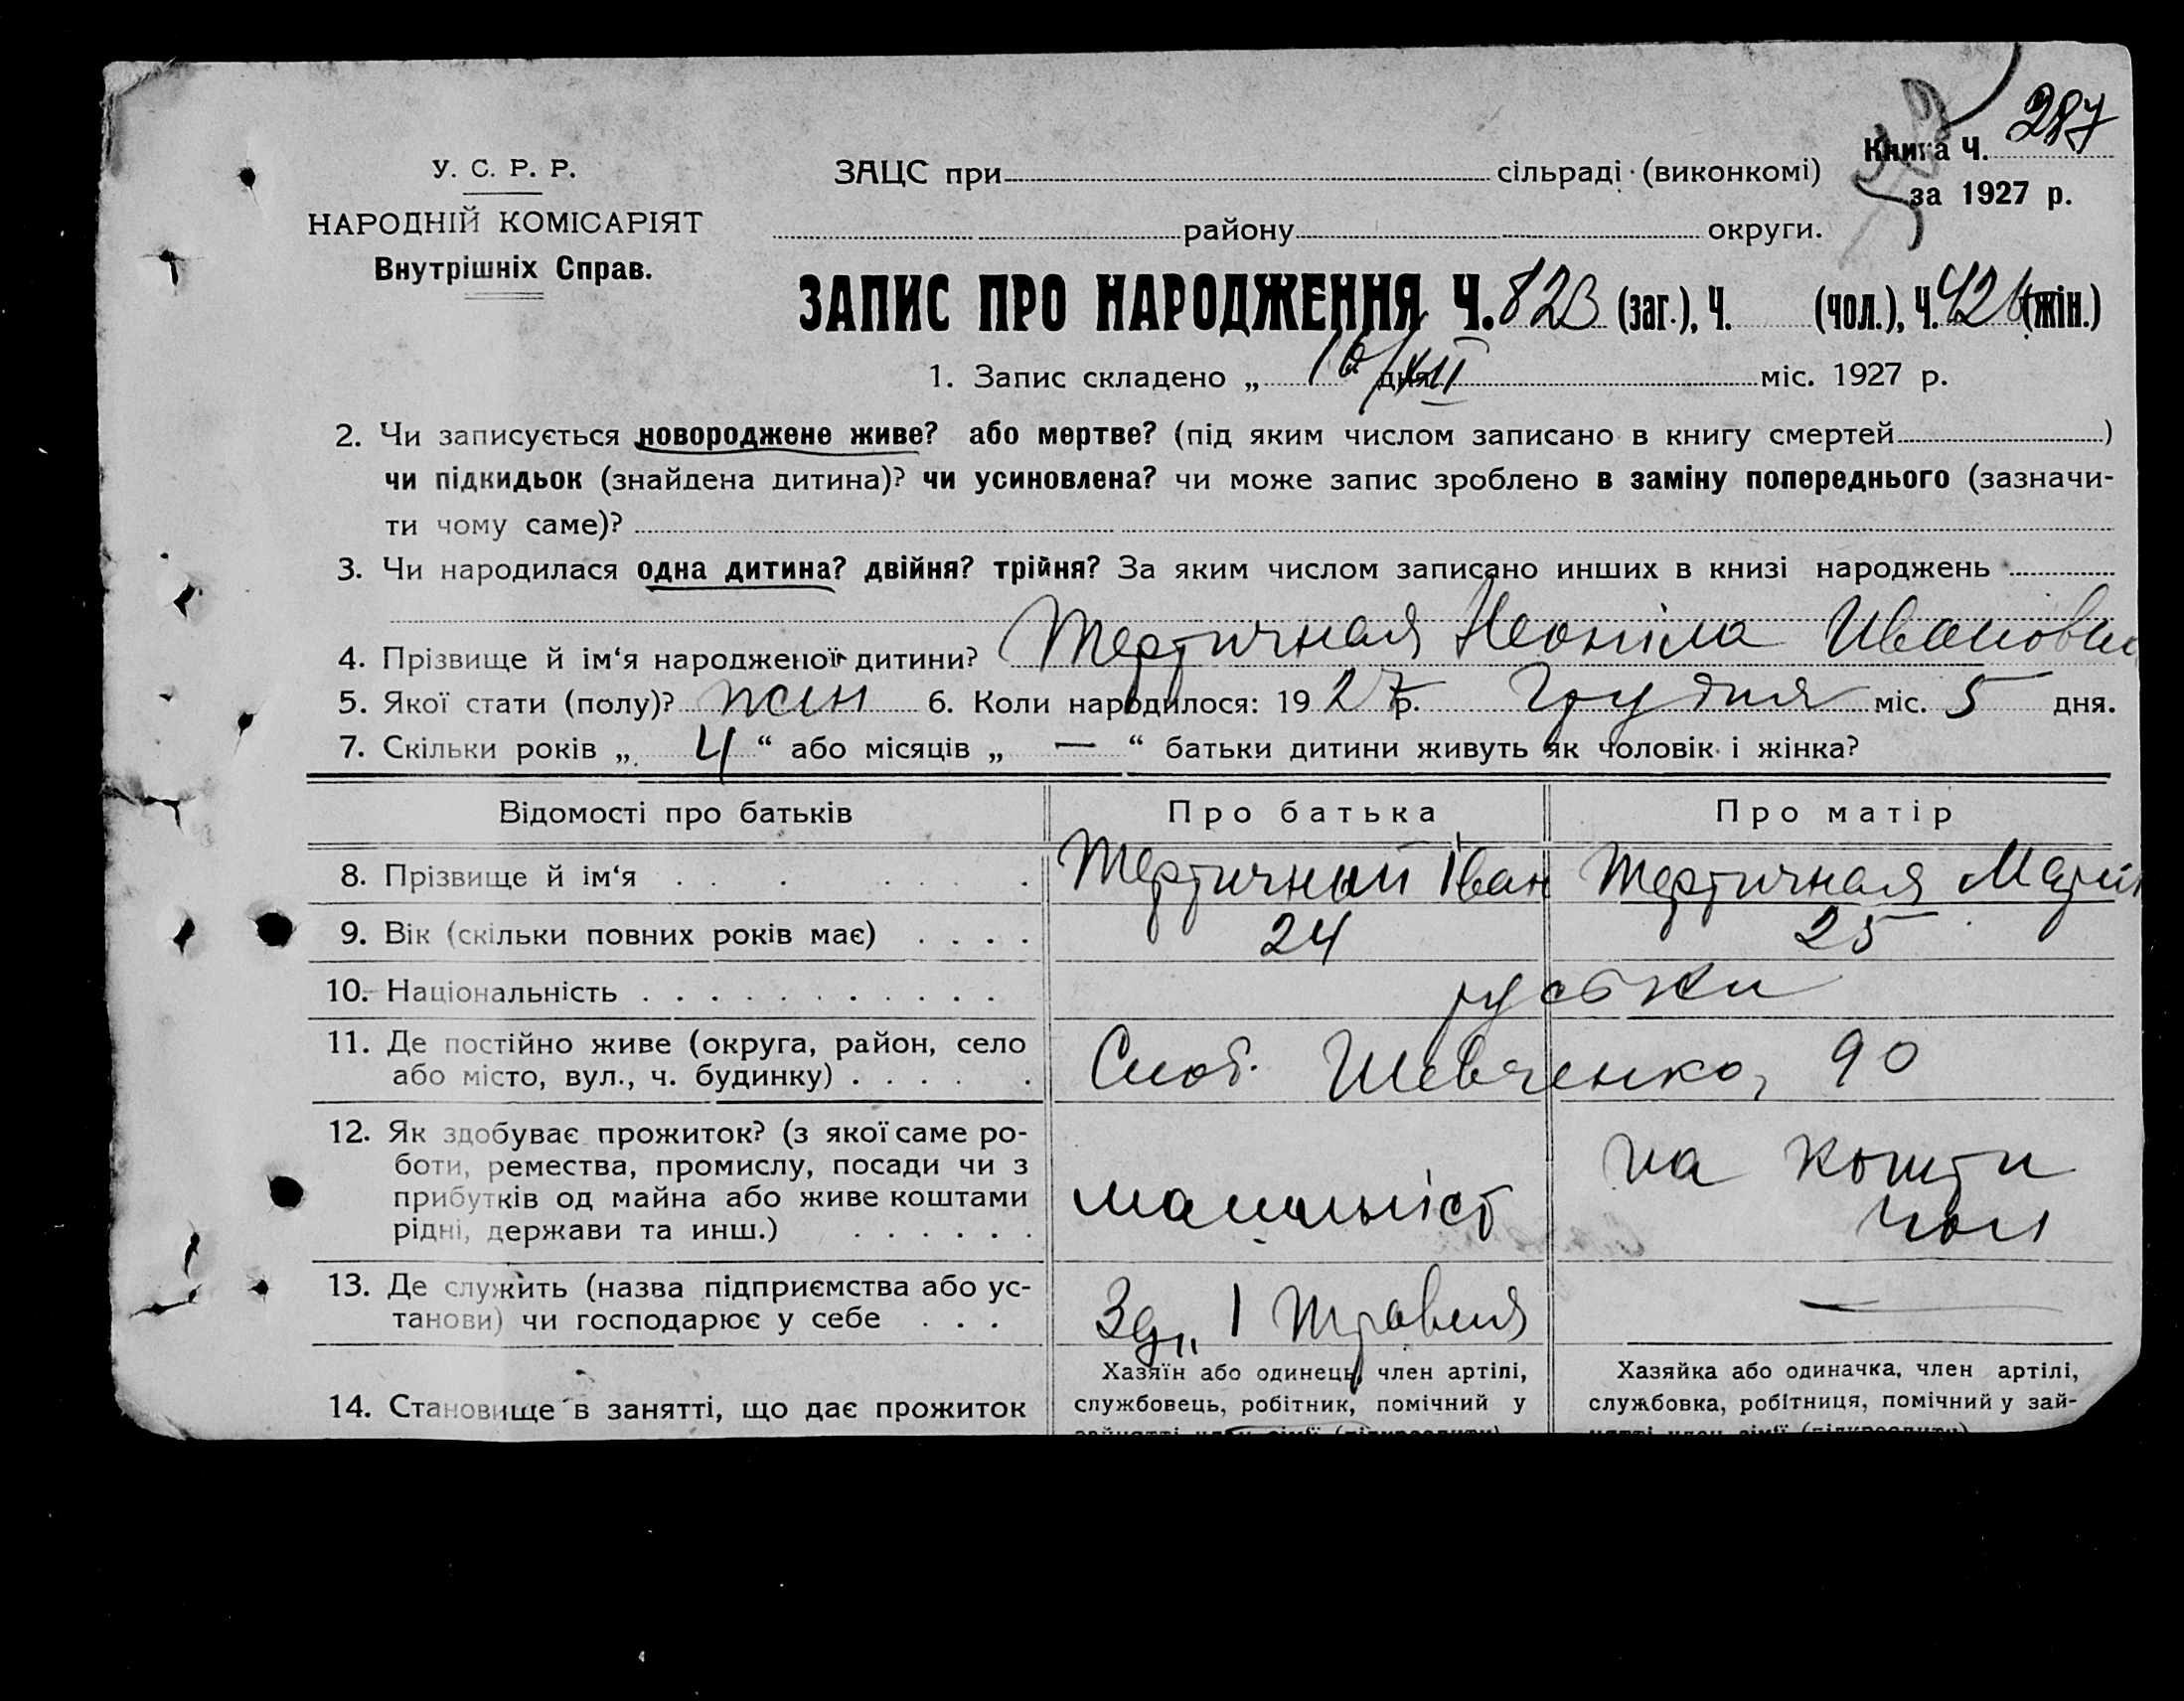 287
У. С. Р. Р.
ЗАЦС при сільраді (виконкомі)
Книга Ч.
за 1927 р.
НАРОДНІЙ КОМІСАРІЯТ
району округи.
Внутрішніх Справ.
ЗАПИС ПРО НАРОДЖЕННЯ Ч. 823 (заг.), Ч. (чол.), Ч. 426 (жін.)
1. Запис складено „ 16/XII дня міс. 1927 р.
2. Чи записується новороджене живе? або мертве? (під яким числом записано в книгу смертей )
чи підкидьок (знайдена дитина)? чи усиновлена? чи може запис зроблено в заміну попереднього (зазначи-
ти чому саме)?
3. Чи народилася одна дитина? двійня? трійня? За яким числом записано инших в книзі народжень
4. Прізвище й ім‘я народженої дитини? Тертичная Неоніла Ивановн
5. Якої стати (полу)? жін 6. Коли народилося: 1927 р. Грудня міс. 5 дня.
7. Скільки років „ 4 “ або місяців „ — “ батьки дитини живуть як чоловік і жінка?
Відомості про батьків Про батька Про матір
8. Прізвище й ім‘я Тертичный Іван Тертичная Марія
9. Вік (скільки повних років має) 24 25
10. Національність руськи
11. Де постійно живе (округа, район, село
або місто, вул., ч. будинку) Слоб. Шевченко, 90
12. Як здобуває прожиток? (з якої саме ро-
боти, ремества, промислу, посади чи з
прибутків од майна або живе коштами
рідні, держави та инш.) машиніст на кошти
чол
13. Де служить (назва підприємства або ус-
танови) чи господарює у себе 1 Травня —
14. Становище в занятті, що дає прожиток
Хазяїн або одинець, член артілі,
службовець, робітник, помічний у
зайнятті член сімї (підкреслити)
Хазяйка або одиначка, член артілі,
службовка, робітниця, помічний у зай-
нятті член сімї (підкреслити)